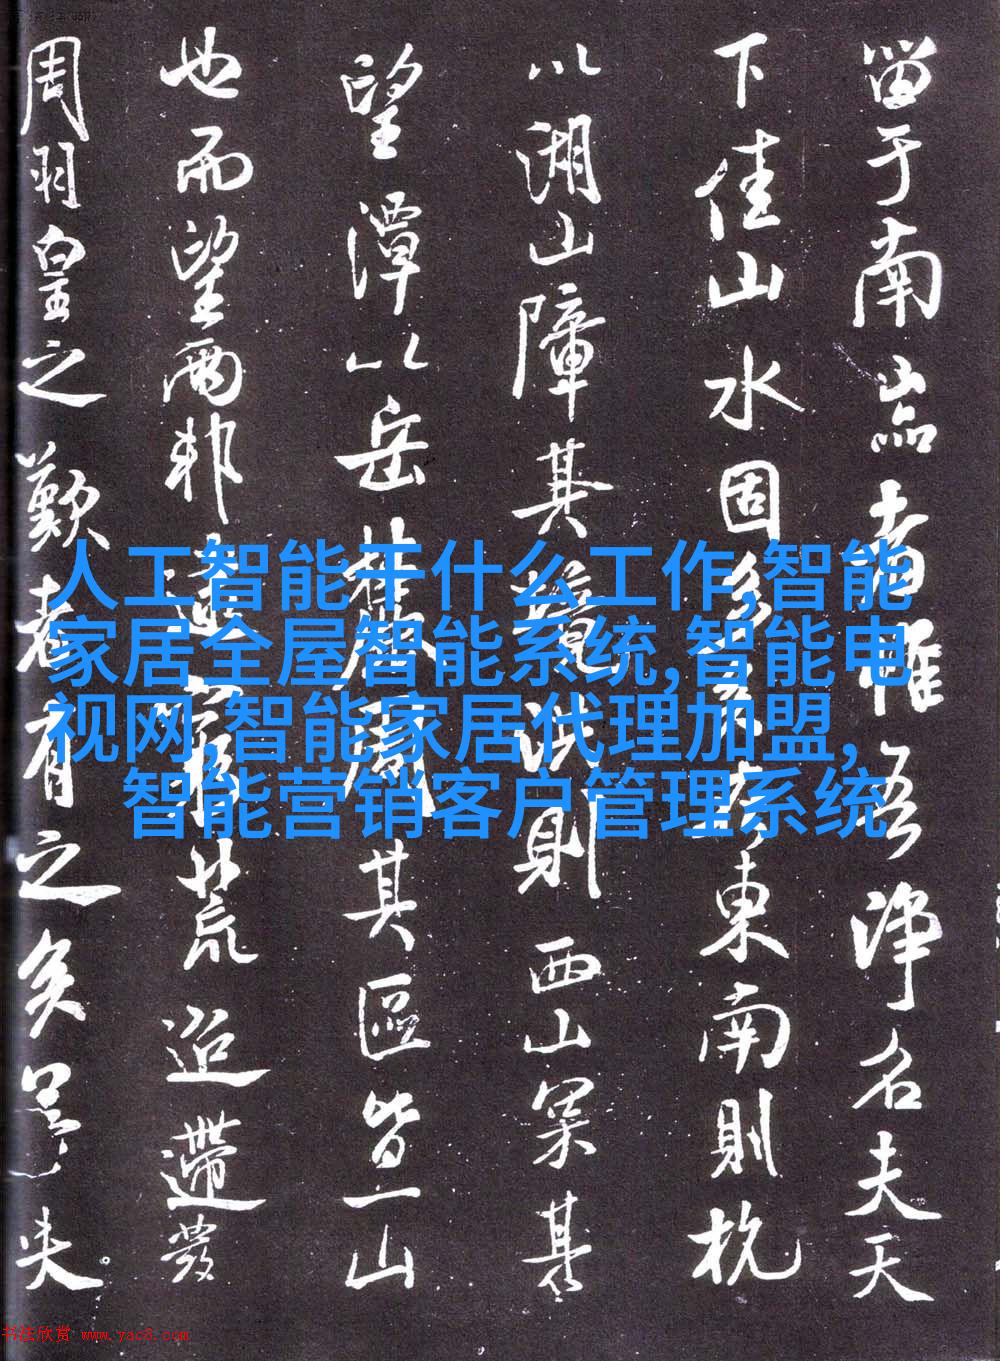 留于南嵒者惟吾淨名夫天
下佳山水固多矣東南則杭
以湖山障其則西山其
望潭以岳其區皆一山
也而望兩邦荒迢遰發
周羽皇之歎者有之矣夫
人工智能干什么工作,智能
家居全屋智能系统,智能电
视网,智能家居代理加盟,
智能营销客户管理系统
书法欣赏 www.yac8.com